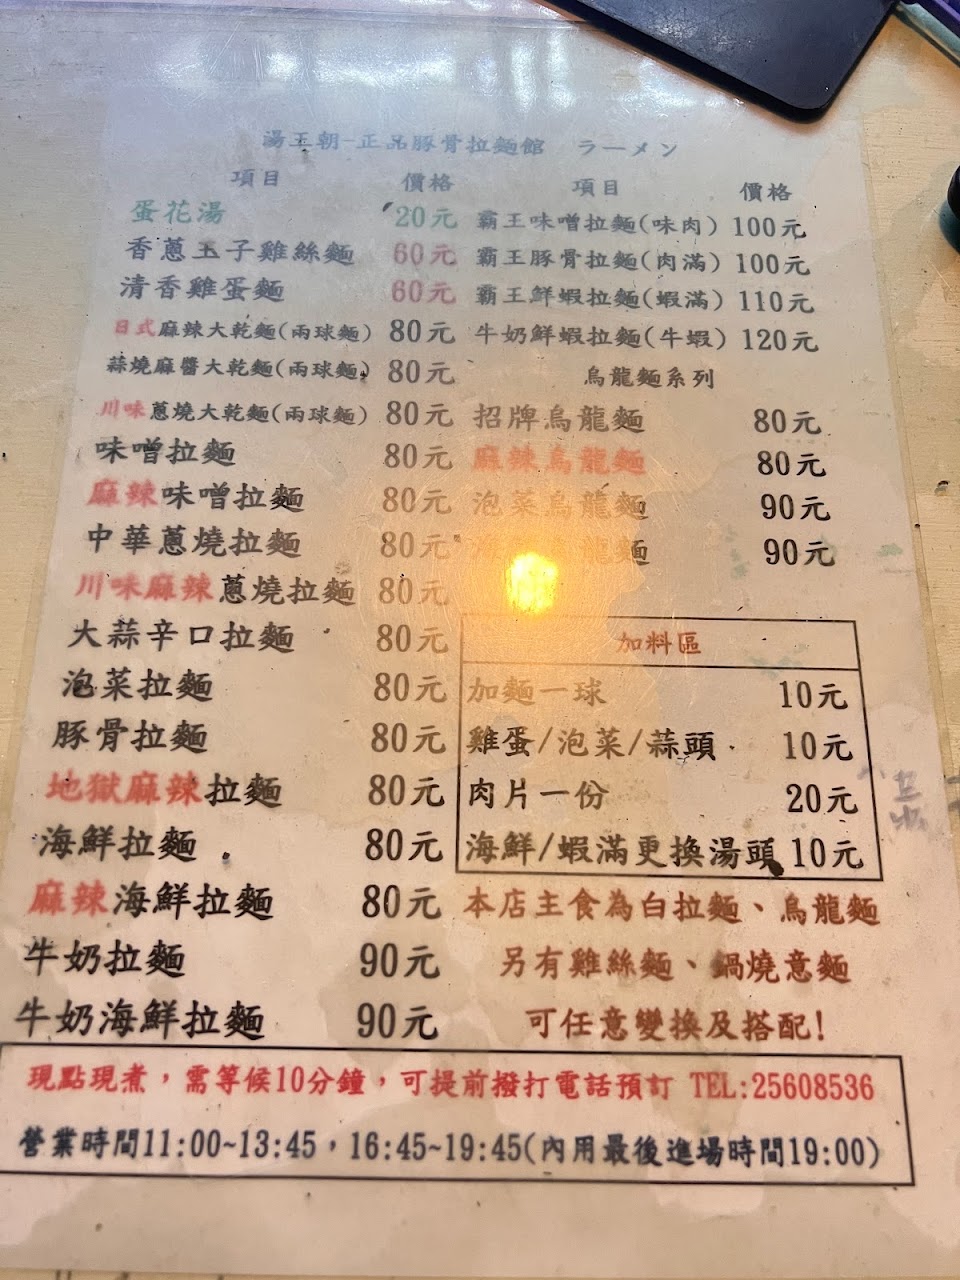 湯王朝-正品豚骨拉麵館 ラーメン
項目 價格
蛋花湯 20元
香蔥玉子雞絲麵 60元
清香雞蛋麵 60元
日式麻辣大乾麵(兩球麵) 80元
蒜燒麻醬大乾麵(兩球麵) 80元
川味蔥燒大乾麵(兩球麵) 80元
味噌拉麵 80元
麻辣味噌拉麵 80元
中華蔥燒拉麵 80元
川味麻辣蔥燒拉麵 80元
大蒜辛口拉麵 80元
泡菜拉麵 80元
豚骨拉麵 80元
地獄麻辣拉麵 80元
海鮮拉麵 80元
麻辣海鮮拉麵 80元
牛奶拉麵 90元
牛奶海鮮拉麵 90元
項目 價格
霸王味噌拉麵(味肉) 100元
霸王豚骨拉麵(肉滿) 100元
霸王鮮蝦拉麵(蝦滿) 110元
牛奶鮮蝦拉麵(牛蝦) 120元
烏龍麵系列
招牌烏龍麵 80元
麻辣烏龍麵 80元
泡菜烏龍麵 90元
海龍麵 90元
加料區
加麵一球 10元
雞蛋/泡菜/蒜頭 10元
肉片一份 20元
海鮮/蝦滿更換湯頭 10元
本店主食為白拉麵、烏龍麵
另有雞絲麵、鍋燒意麵
可任意變換及搭配!
現點現煮，需等候10分鐘，可提前撥打電話預訂 TEL:25608536
營業時間11:00~13:45，16:45~19:45(內用最後進場時間19:00)